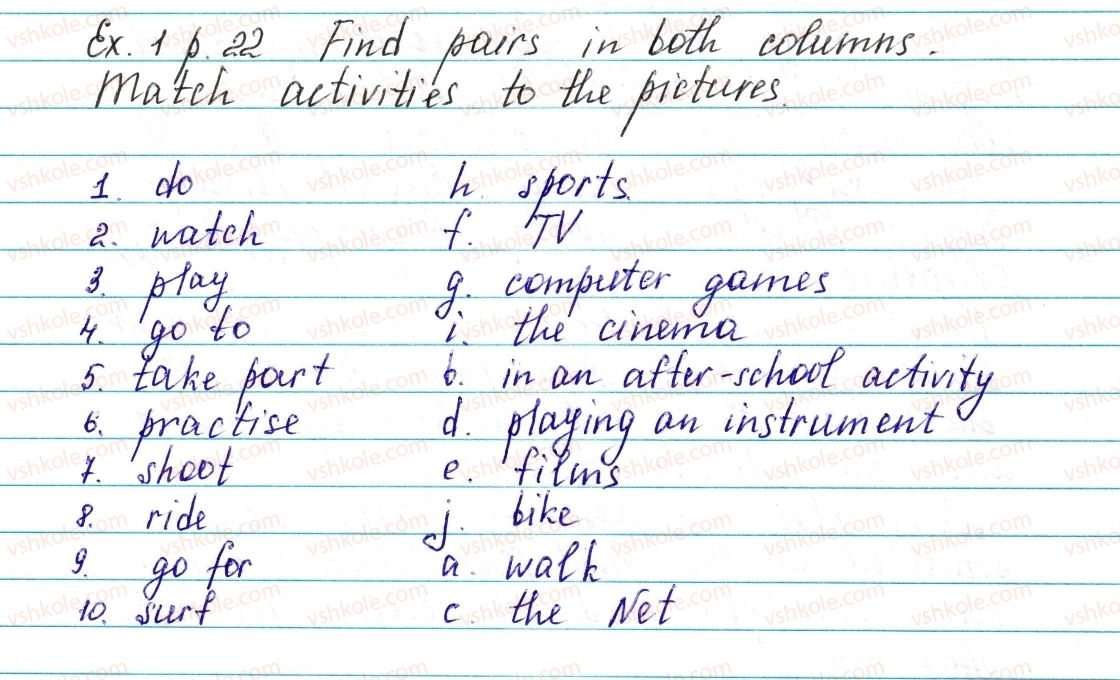 Ex. 1 p. 22 Find pairs in both columns.
Match activities to the pictures.
1. do h. sports.
2. watch f. TV
3. play g. computer games
4. go to i. the cinema
5. take part b. in an after-school activity
6. practise d. playing an instrument
7. shoot e. films
8. ride j. bike
9. go for a. walk
10. surf c. the Net